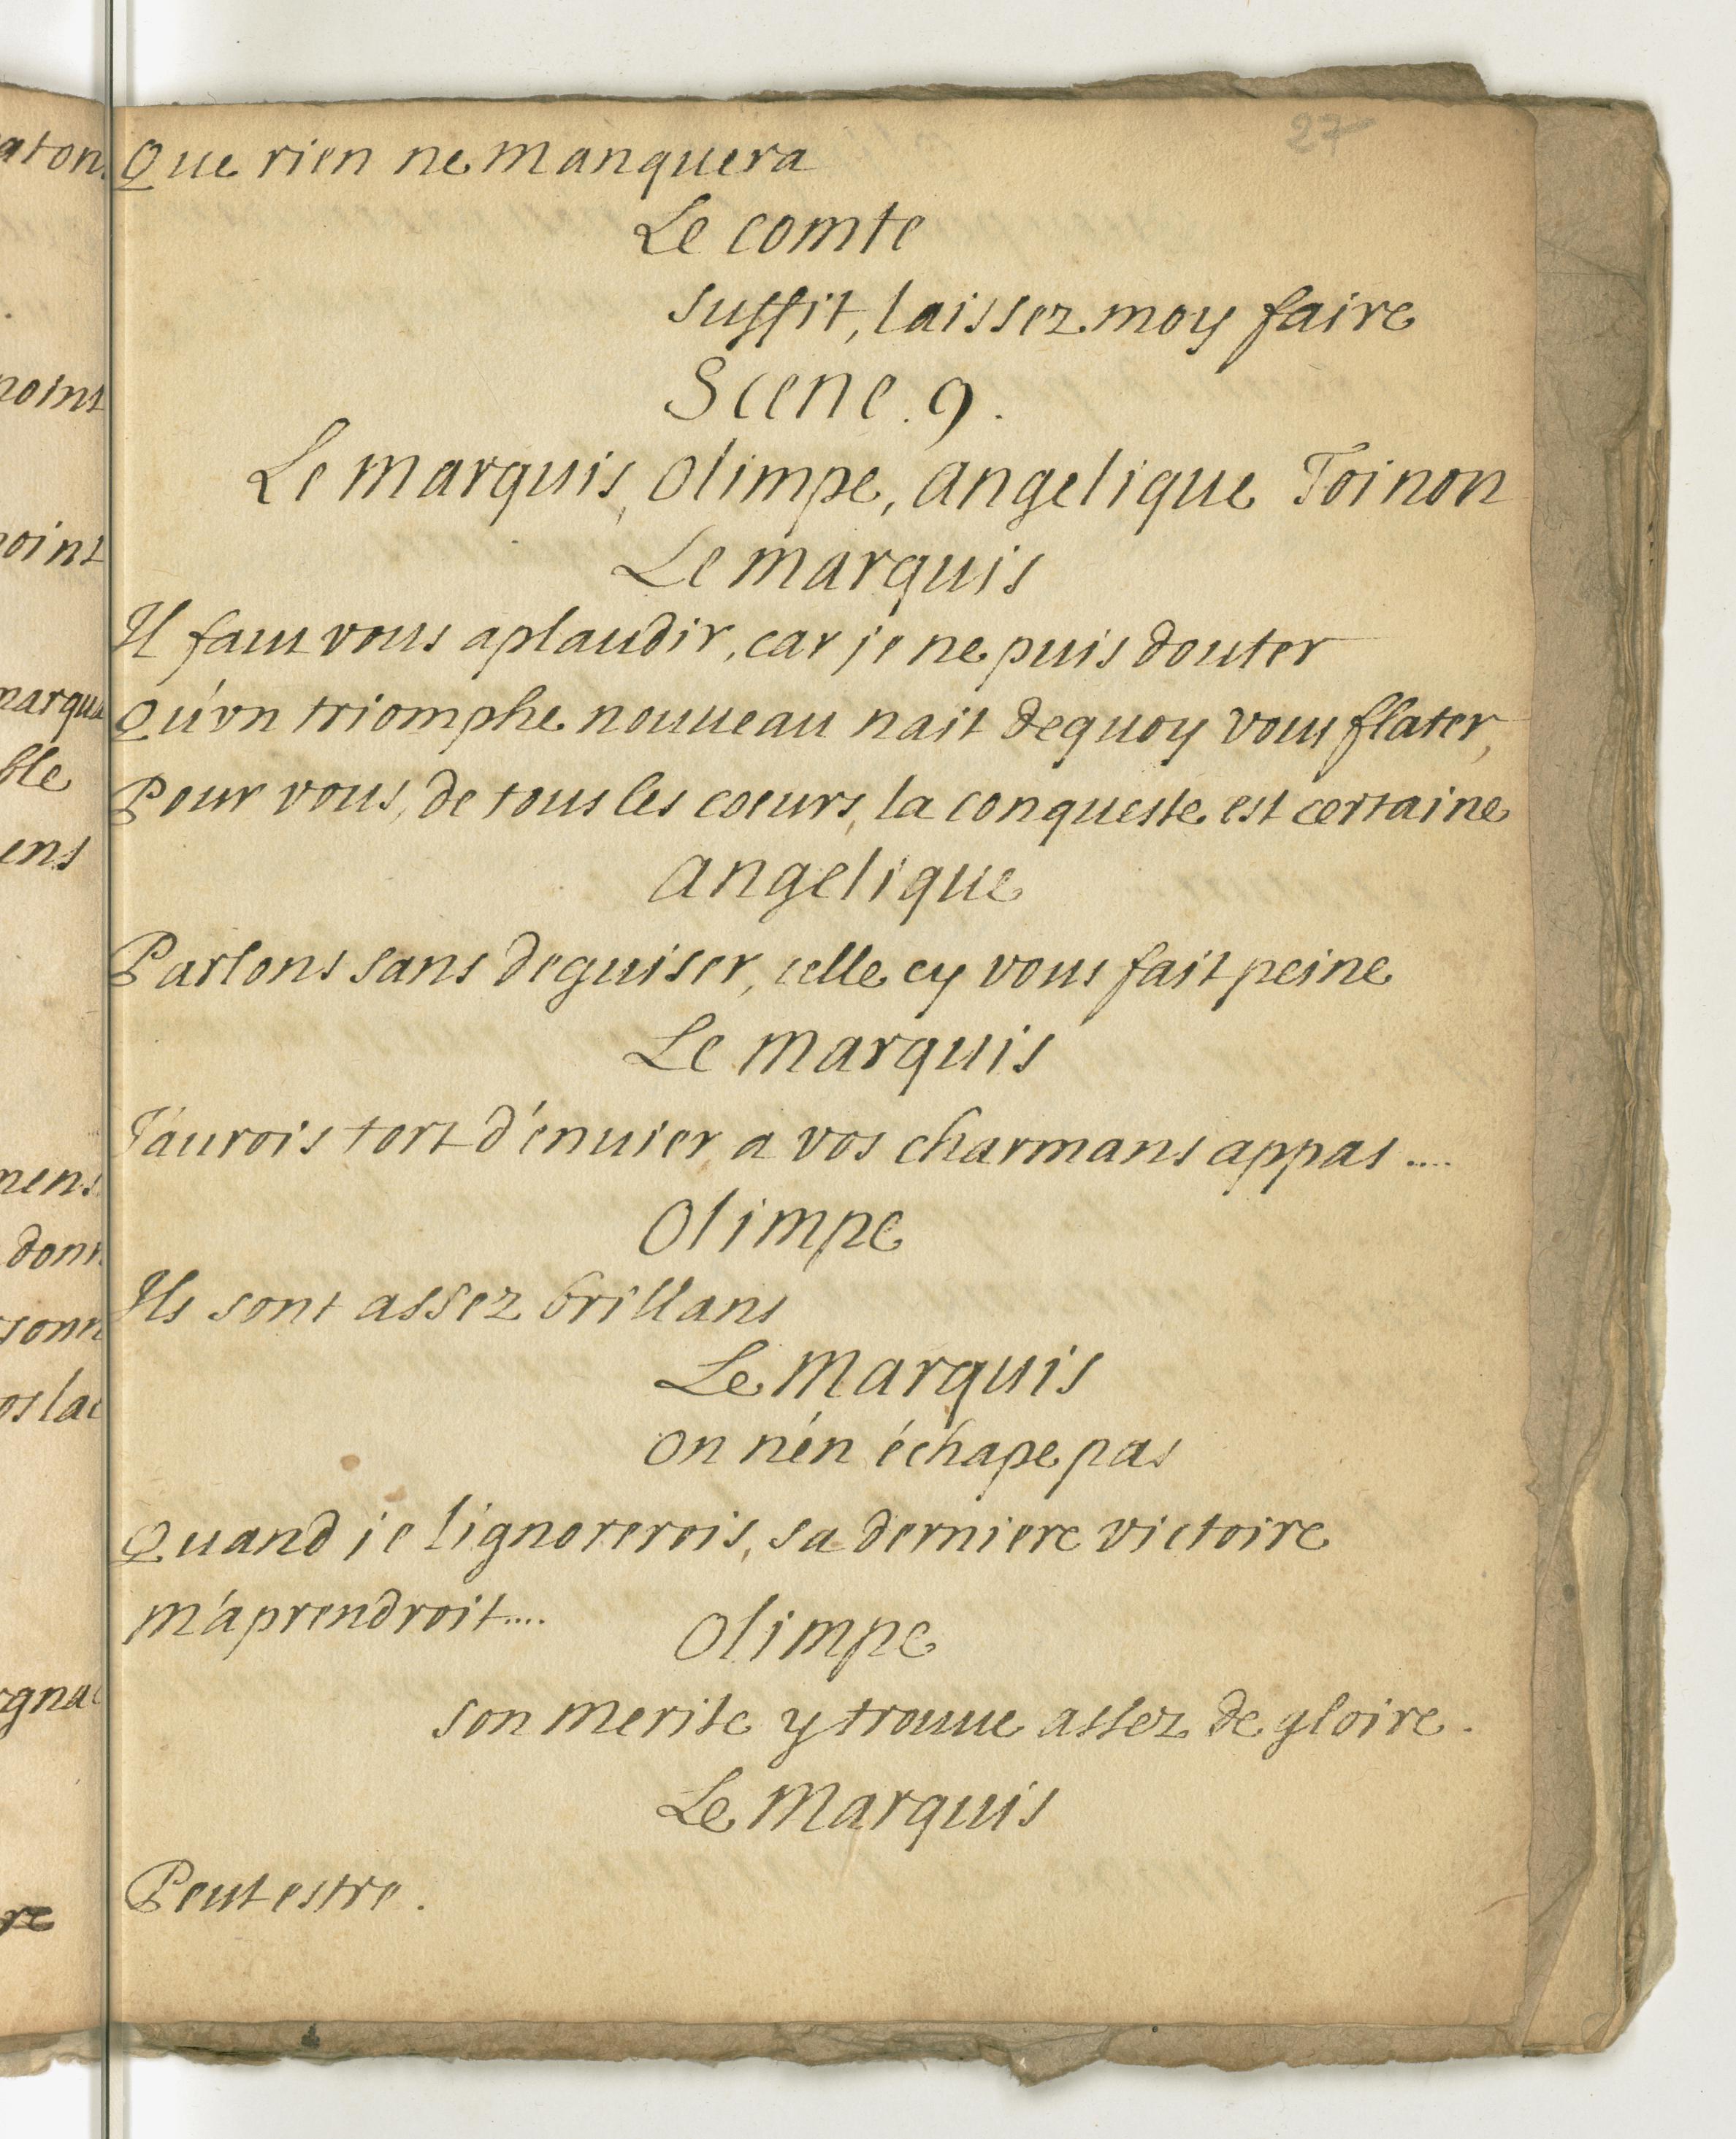 27
Que rien ne manquera
Le comte
suffit, laissez moy faire
Scene . 9 .
Le marquis, Olimpe, angelique Toinon
Le marquis
Il faut vous aplaudir, car je ne puis douter
Qu'vn triomphe nouueau nait dequoy vous flater,
Pour vous, de tous les coeurs, la conqueste est certaine
angelique
Parlons sans deguiser, celle cy vous fait peine
Le marquis
J'aurois tort d'enuier a vos charmans appas ....
Olimpe
Ils sont assez brillans
Le Marquis
on n'en échape pas
Quand je l'ignorerois, sa derniere victoire
m'aprendroit....
Olimpe
son merite y trouue assez de gloire .
Le Marquis
Peut estre .